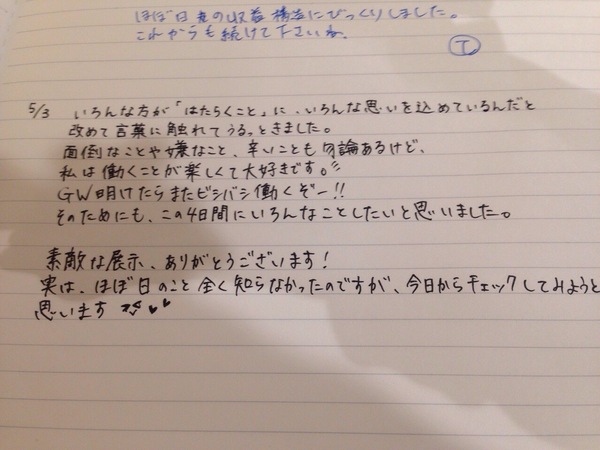 ほぼ日さんの収益構造にびっくりしました。
これからも続けて下さいね。
T
5/3 いろんな方が「はたらくこと」に、いろんな思いを込めているんだと
改めて言葉に触れてうるっときました。
面倒なことや嫌なこと、辛いことも勿論あるけど、
私は働くことが楽しくて大好きです。
GW明けたらまたビシバシ働くぞー!!
そのためにも、この4日間にいろんなことしたいと思いました。
素敵な展示、ありがとうございます!
実は、ほぼ日のこと全く知らなかったのですが、今日からチェックしてみようと
思います ♥♥